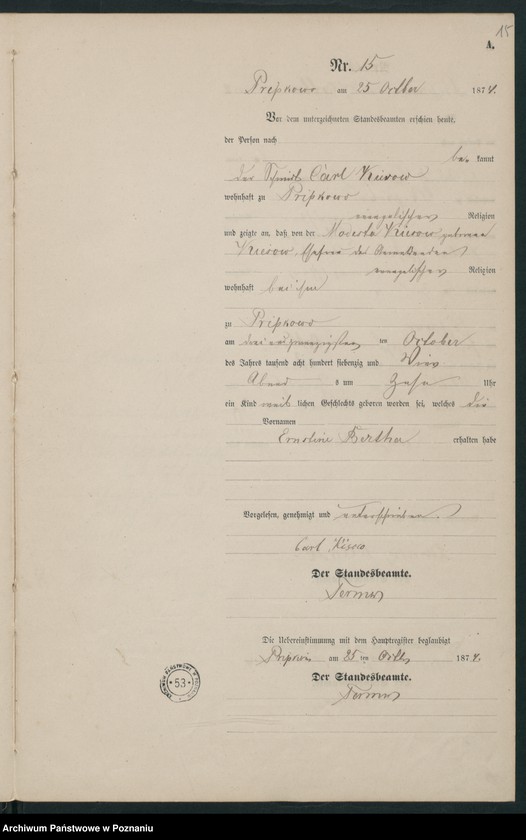 15
A.
Nr. 15
am 25 Octber 1874.
Vor dem unterzeichneten Standesbeamten erschien heute,
der Person nach
be kannt
der Schmidt Carl
wohnhaft zu
evangelischer Religion
und zeigte an, daß von der geborene
Ehefrau des
evangelischer Religion
wohnhaft bei ihm
zu
am drei und zwanzigsten ten October
des Jahres tausend acht hundert siebenzig und vier
Abend s um Zehn Uhr
ein Kind weib lichen Geschlechts geboren worden sei, welches die
Vornamen
Ernstine Bertha erhalten habe
Vorgelesen, genehmigt und unterschrieben.
Carl
Der Standesbeamte.
Die Uebereinstimmung mit dem Hauptregister beglaubigt
am 25 ten Octb 1874.
Der Standesbeamte.
ARCHIWUM PAŃSTWOWE W POZNANIU
53
Archiwum Państwowe w Poznaniu